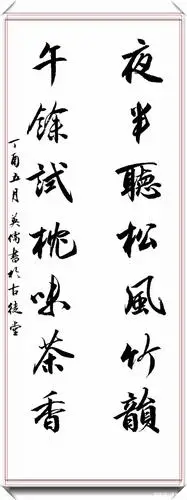 夜半聽松風竹韻
午餘試枕味茶香
丁酉五月英偉書於古稜堂